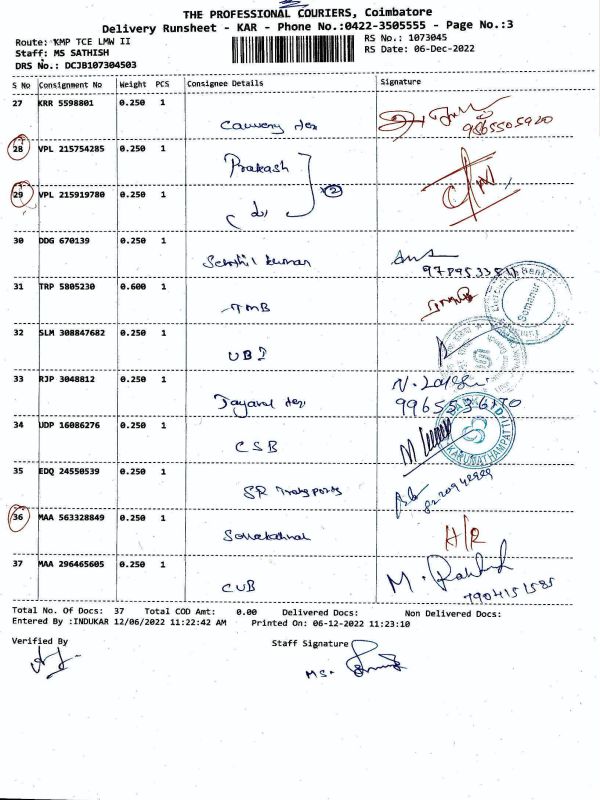 THE PROFESSIONAL COURIERS, Coimbatore
Delivery Runsheet - KAR - Phone No.:0422-3505555 - Page No.:3
Route: KMP TCE LMW II
RS No.: 1073045
Staff: MS SATHISH
RS Date: 06-Dec-2022
DRS No.: DCJB107304503
S No Consignment No Weight PCS Consignee Details Signature
27 KRR 5598801 0.250 1
9865505920
28 VPL 215754285 0.250 1 Prakash
29 VPL 215919780 0.250 1 do 2
30 DDG 670139 0.250 1 Senthil kumar
31 TRP 5805230 0.600 1 TMB
32 SLM 308847682 0.250 1 UBI
33 RJP 3048812 0.250 1
9965536170
34 UDP 16086276 0.250 1 CSB
35 EDQ 24550539 0.250 1 SR Transports
36 MAA 563328849 0.250 1 H/R
37 MAA 296465605 0.250 1 CUB
7904151585
Total No. Of Docs: 37 Total COD Amt: 0.00 Delivered Docs: Non Delivered Docs:
Entered By :INDUKAR 12/06/2022 11:22:42 AM Printed On: 06-12-2022 11:23:10
Verified By Staff Signature
MS.